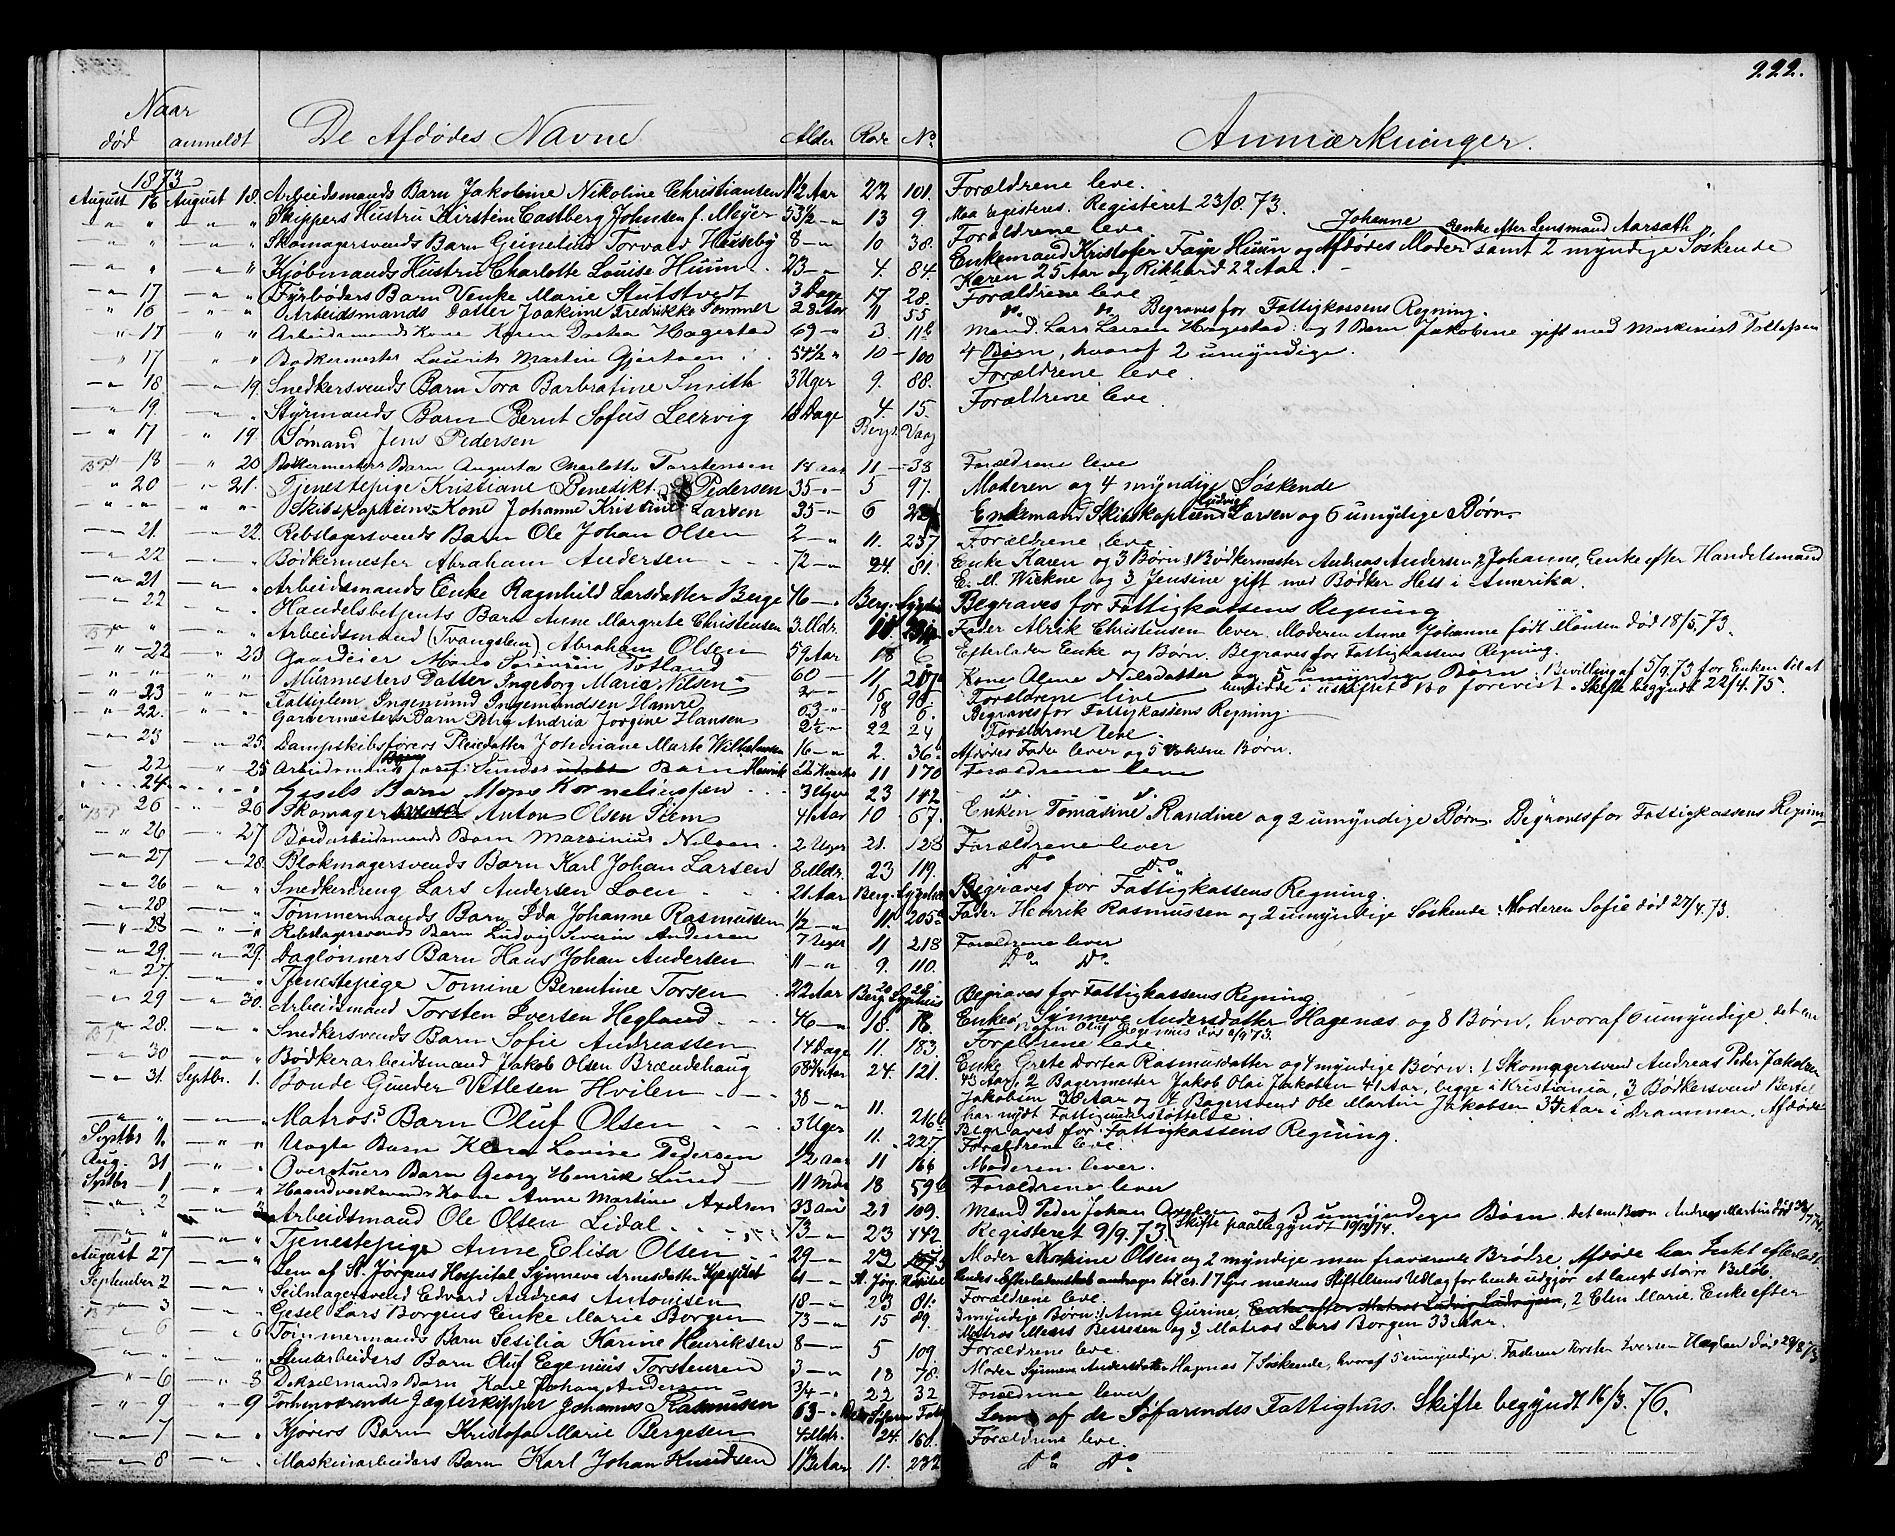 222.
Naar
død anmeldt De Afdødes Navne Alder Rode No. Anmærkninger.
1873
August 16 August 18. Arbeidsmands Barn Jakobine Nikoline Christiansen 1/2 Aar 22 101. Forældrene leve.
" " Skippers Hustru Kirstine Castberg Johnsen f. Meyer 53 1/2 " 13 9. Maa registeres. Registeret 23/8. 73.
" " Skomagersvends Barn Torvald Heuseby 8 " 10 38. Forældrene leve.
" " Kjøbmands Hustru Charlotte Louise Huun 23 " 4. 84. Enkemand Kristofer Faye Huun og Afdødes Moder Johanne Enke efter Lensmand Aarsæth samt 2 myndige Søskende
Karen 25 Aar og Rikhard 22 Aar.
" 17 " " Fyrbøders Barn Venke Marie Stutstvedt 3 Dage 17 28. Forældrene leve
" 16 " " Arbeidsmands Datter Joakime Fredrikke Sommer 28 Aar 11 55 Do. Do. Begraves for Fattigkassens Regning.
" 17 " " Arbeidsmands Kone Karen Dortea Hagestad 69 " 3. 11b Mand: Lars Larsen Hagestad: og 1 Barn Jakobine gift med Maskinist Tollefsen
" 17 " " Bødkermester Laurits Martin Gjertsen 54 1/2 " 10 100 4 Børn, hvoraf 2 umyndige.
" 18 " 19. Snedkersvends Barn Tora Barbratine Smith 3 Uger 9. 88. Forældrene leve.
" 19. " " Styrmands Barn Bernt Sofus Leervig 13 Dage 4. 15. Forældrene leve.
" 17 " 19 Sømand Jens Pedersen Bergs. Vaag
" 18 " 20 Bødkermesters Barn Augusta Charlotte Torstensen 18 Aar 11 33 Forældrene leve
" 20 " 21. Tjenestepige Kristiane Benedikt. Pedersen 35 " 5 97. Moderen og 4 myndige Søskende
" " " " Skibskapteins Kone Johanne Kristine Larsen 35 " 6 Enkemand Skibskaptein Ludvig Larsen og 6 umyndige Børn.
" 21. " 22. Rebslagersvends Barn Ole Johan Olsen 2 " 11. 237 Forældrene leve
" 22 " " Bødkermester Abraham Andersen 72 " 24. 81. Enke Karen og 3 Børn: 1 Bødkermester Andreas Andersen, 2 Johanne, Enke efter Handelsmand
E. M. Wiekne og 3 Jensine gift med Bødker Hess i Amerika.
" 21. " " Arbeidsmands Enke Ragnhild Larsdatter Berge 76 " Berg. Sygehus Begraves for Fattigkassens Regning
" 22 " " Handelsbetjents Barn Anne Margrete Christensen 3 Mdr. Fader Alrik Christensen lever. Moderen Anne Johanne født Monsen død 18/5. 73.
" " " " Arbeidsmand (Tvangslem) Abraham Olsen 59 Aar 18 6 Efterlader Enke og Børn. Begraves for Fattigkassens Regning.
" 22 " 23 Gaardeier Mons Sørensen Totland 60 " 11 Kone Oline Nilsdatter og 5 umyndige Børn. Bevilling af 5/9.73 for Enken til at
hensidde i uskiftet Bo forevist. Skifte begyndt 22/4. 75.
" " " " Murmesters Datter Ingeborg Marie Nilsen 18 Forældrene leve
" 23 " " Fattiglem Ingemund Ingemundsen Hamre 63 " 18 6. Begraves for Fattigkassens Regning.
" 22. " " Garvermesters Barn Petra Andria Jørgine Hansen 2 1/2 " 22 24 Forældrene leve.
" 23 " 25. Dampskibsførers Pleiedatter Johanne Marte Wilhelmsen 16 " 2. 36 Afdødes Fader lever og 5 voksne Børn.
" 22 " 25 Arbeidsmand Josef Sundes Barn Henrik 11 170 Forældrene leve
" 24 " " Gjæsels Barn Mons Korneliussen 3 Uger 23 142 Do. Do.
" 26 " 26 Skomager Anton Olsen Siem 41 Aar 10 67. Enken Tomasine Randine og 2 umyndige Børn. Begraves for Fattigkassens Regning
" 26 " 27 Bordarbeidsmands Barn Martinius Nilsen 2 Uger 21. 128 Forældrene lever
" 27 " 28 Blokmagersvends Barn Karl Johan Larsen 8 Mdr. 23 119. Do Do
" 26 " " Snedkerdreng Lars Andersen Loen 21 Aar Berg. Sygehus Begraves for Fattigkassens Regning.
" 28 " " Tømmermands Barn Ida Johanne Rasmussen 1/2 " 11. 205a Fader Henrik Rasmussen og 2 umyndige Søskende. Moderen Sofie død 27/4. 73.
" 28 " " Rebslagersvends Barn Ludvig Severin Andersen 7 Uger 11 218 Forældrene lever
" 29. " 29. Daglønners Barn Hans Johan Andersen 11 " 9. 110. Do. Do.
" 27 " " Tjenestepige Tomine Berentine Torsen 22 Aar Berg. Sygehus Begraves for Fattigkassens Regning.
" 29 " 30. Arbeidsmand Torsten Iversen Hegland 46 " 18. 16. Enken Synneve Andersdatter Hagenæs og 8 Børn, hvoraf 6 umyndige. det ene
Barn Oluf Eegenius død 6/9 73.
" 28. " " Snedkersvends Barn Sofie Andreassen 14 Dage 11. 183. Forældrene leve
" 30 " " Bødkerarbeidsmand Jakob Olsen Brændehaug 68 Aar 24. 121. Enke Grete Dortea Rasmusdatter og 4 myndige Børn: 1 Skomagersvend Andreas Peder Jakobsen
43 Aar, 2 Bagermester Jakob Olai Jakobsen 41 Aar, begge i Kristiania, 3 Bødkersvend Bertel
Jakobsen 38 Aar og 4 Bagersvend Ole Martin Jakobsen 34 Aar i Drammen. Afdøde
har nydt Fattigunderstøttelse.
" 31. Septbr. 1. Bonde Gunder Vetlesen Hvilen 38 " 11. 216 Begraves for Fattigkassens Regning.
" " " " Matros's Barn Oluf Olsen 3 Uger 11. 227. Forældrene leve.
Septbr 1. " " Vagts Barn Klara Lovise Pedersen 1/2 Aar 11 166 Moderen lever.
Aug. 31 " " Overtuers Barn Georg Henrik Lund 11 Mdr 18 59b Forældrene lever
Septbr 1 " " Haandverksvends Kone Anne Martine Axelsen 33 Aar 21 109. Mand Peder Johan Axelsen og 3 umyndige Børn. det ene Barn Andreas Martin død
" 2 " Arbeidsmand Ole Olsen Lidal 73 " 23 142 Registeret 9/9. 73. Skifte paabegyndt 19/12/74.
" " " " Tjenestepige Anne Elisa Olsen 29 " 23 Moder Olsen og 2 myndige men fraværende Brødre. Afdøde har Intet efterladt.
August 27 " " Lem af St. Jørgens Hospital Synneve Arnesdatter 61 " St. Jørg. Hospital Hendes Efterladenskab andrager til cr. 17 medens Stiftelsens Udlæg for hende udgjør et langt større Beløb.
September 2 " " Seilmagersvend Edvard Andreas Antonisen 18 " 23 81. Forældrene leve.
" 3 " " Gesel Lars Borgens Enke Marie Borgen 73 " 15 29. 3 myndige Børn: 1 Anne Gurine, Enke efter Matros Ludvig Ludvigsen, 2 Elen Marie, Enke efter
Matros Mons Bessesen og 3 Matros Lars Borgen 33 Aar.
" 6 " 6 Tømmermands Barn Sesilia Karine Henriksen 8 " 5 109. Forældrene leve.
" " " " Stenarbeiders Barn Oluf Eegenius Torstensen 3 " 18 78. Moder Synneve Andersdatter Hagnæs 7 Søskende, hvoraf 5 umyndige. Faderen Torsten Iversen Hegland død 29/8 73
" 6 " 8 Dækselmands Barn Karl Johan Andersen 3/4 " 22 32 Forældrene lever
" 9 " 9 Forhenværende Jægteskipper Johannes Rasmussen 63 " Lem af de Søfarendes Fattighus. Skifte begyndt 16/3. 76.
" 7 " " Kjørers Barn Kristofa Marie Bergesen 4 Mdr. 24. 160. Forældrene leve.
" 8 " " Maskinarbeiders Barn Karl Johan Knudsen 1 1/2 Aar 11. 232 Do Do.